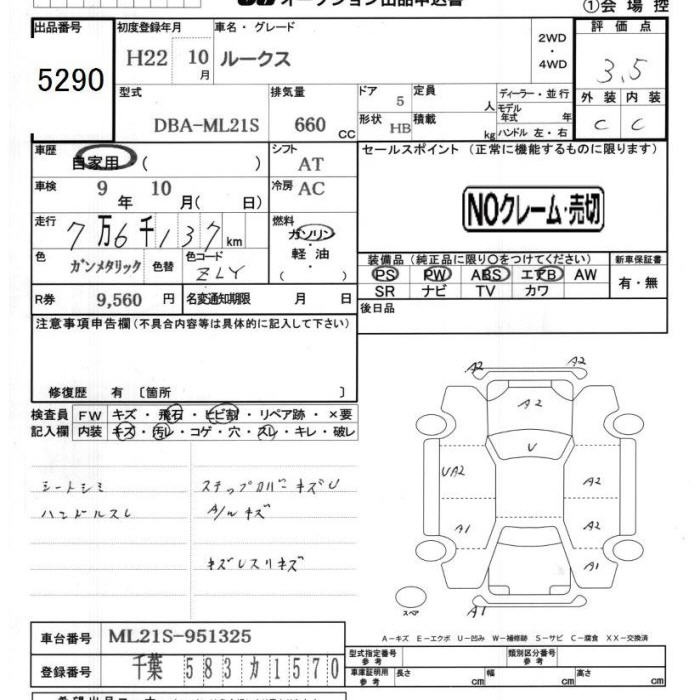 オークション出品申込書
①会場控
出品番号 5290
初度登録年月 H22 10月
車名・グレード ルークス
2WD・4WD
評価点 3.5
外装 内装
C C
型式 DBA-ML21S
排気量 660 CC
ドア 5
形状 HB
定員 人
積載 kg
ディーラー・並行
モデル年式 年
ハンドル 左・右
車歴 自家用 ( )
シフト AT
セールスポイント (正常に機能するものに限ります)
NOクレーム・売切
車検 9年 10月( 日)
冷房 AC
走行 7万6千137km
燃料 ガソリン・軽油 ( )
色 ガンメタリック 色替
色コード ZLY
装備品 (純正品に限り○をつけてください)
PS PW ABS エアB AW
SR ナビ TV カワ
新車保証書
有・無
R券 9,560 円
名変通知期限 月 日
後日品
注意事項申告欄 (不具合内容等は具体的に記入して下さい)
修復歴 有 〔箇所 〕
検査員記入欄
FW キズ・飛石・ヒビ割・リペア跡・×要
内装 キズ・汚レ・コゲ・穴・スレ・キレ・破レ
シートシミ ステップカバーキズU
ハンドルスレ A/Wキズ
A2 A2
A2
U
UA2 A2
A1 A2
A1
A1
スペア
A-キズ E-エクボ U-凹み W-補修跡 S-サビ C-腐食 XX-交換済
車台番号 ML21S-951325
登録番号 千葉 583 カ 1570
型式指定番号 参考
類別区分番号 参考
車庫証明用 参考 長さ cm 幅 cm 高さ cm